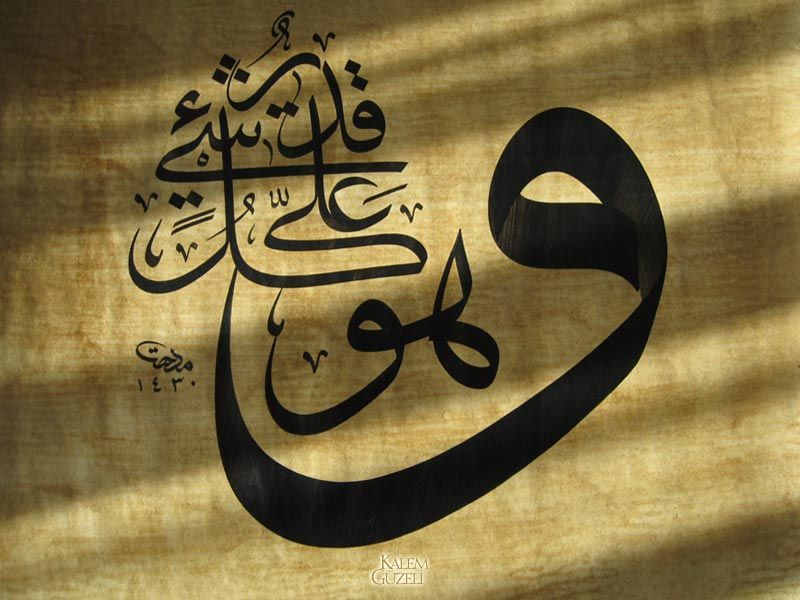 وهو على كل شيء قدير
مدحت
١٤٣٠
KALEM
GUZELI